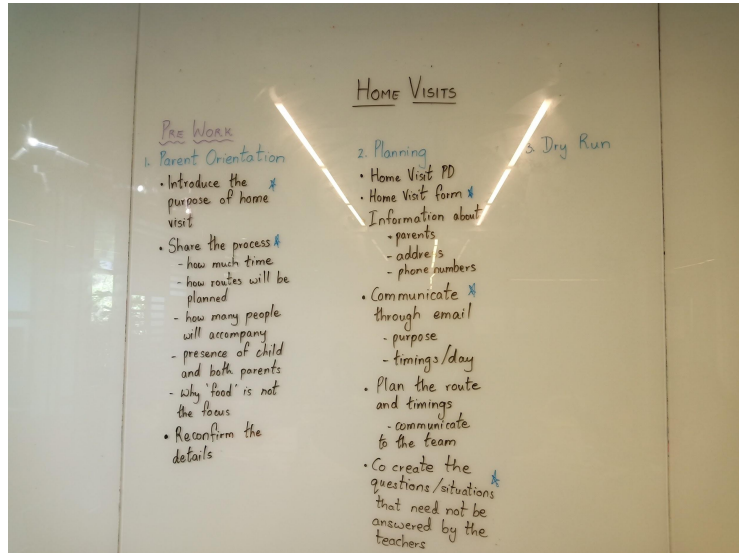 HOME VISITS
PRE WORK
1. Parent Orientation
• Introduce the *
purpose of home
visit
• Share the process *
- how much time
- how routes will be
planned
- how many people
will accompany
- presence of child
and both parents
- why 'food' is not
the focus
• Reconfirm the
details
2. Planning
• Home Visit PD
• Home Visit form *
Information about
- parents
- address
- phone numbers
• Communicate *
through email
- purpose
- timings/day
• Plan the route
and timings
- communicate
to the team
• Co create the
questions/situations *
that need not be
answered by the
teachers
3. Dry Run